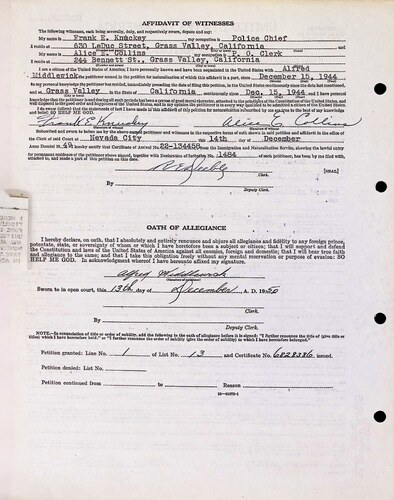 AFFIDAVIT OF WITNESSES
The following witnesses, each being severally, duly, and respectively sworn, depose and say:
My name is Frank E. Knuckey my occupation is Police Chief
I reside at 630 LeDuc Street, Grass Valley, California and
My name is Alice E. Collins my occupation is P. O. Clerk
I reside at 244 Bennett St., Grass Valley, California
I am a citizen of the United States of America; I have personally known and have been acquainted in the United States with Alfred
Middlewick, the petitioner named in the petition for naturalization of which this affidavit is a part, since December 15, 1944
To my personal knowledge the petitioner has resided, immediately preceding the date of filing this petition, in the United States continuously since the date last mentioned,
and at Grass Valley, in the State of California continuously since Dec. 15, 1944, and I have personal
knowledge that the petitioner is and during all such periods has been a person of good moral character, attached to the principles of the Constitution of the United States, and
well disposed to the good order and happiness of the United States, and in my opinion the petitioner is in every way qualified to be admitted a citizen of the United States.
I do swear (affirm) that the statements of fact I have made in this affidavit of this petition for naturalization subscribed by me are true to the best of my knowledge
and belief: SO HELP ME GOD.
Frank E. Knuckey Alice E. Collins
Subscribed and sworn to before me by the above-named petitioner and witnesses in the respective forms of oath shown in said petition and affidavit in the office of the
Clerk of said Court at Nevada City this 14th day of December
22-134455 from the Immigration and Naturalization Service, showing the lawful entry
for permanent residence of the petitioner above named, together with Declaration of Intention No. 1484 of such petitioner, has been by me filed with,
attached to, and made a part of this petition on this date.
Clerk.
[SEAL]
By
Deputy Clerk.
OATH OF ALLEGIANCE
I hereby declare, on oath, that I absolutely and entirely renounce and abjure all allegiance and fidelity to any foreign prince,
potentate, state, or sovereignty of whom or which I have heretofore been a subject or citizen; that I will support and defend
the Constitution and laws of the United States of America against all enemies, foreign and domestic; that I will bear true faith
and allegiance to the same; and that I take this obligation freely without any mental reservation or purpose of evasion: SO
HELP ME GOD. In acknowledgment whereof I have hereunto affixed my signature.
Alfred Middlewick
Sworn to in open court, this 13th day of December, A. D. 1950
Clerk.
By
Deputy Clerk.
NOTE.—In renunciation of title or order of nobility, add the following to the oath of allegiance before it is signed: "I further renounce the title of (give title or
titles) which I have heretofore held," or "I further renounce the order of nobility (give the order of nobility) to which I have heretofore belonged."
Petition granted: Line No. 1 of List No. 13 and Certificate No. 6828386 issued.
Petition denied: List No.
Petition continued from to Reason